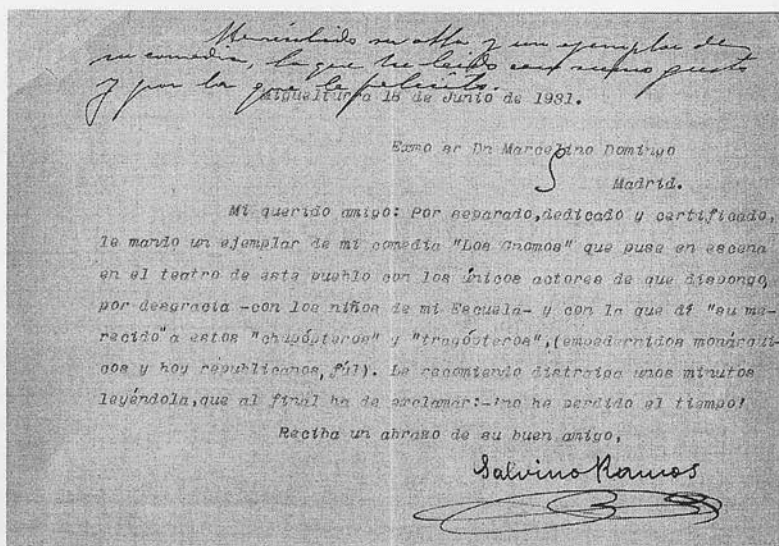 He recibido su atta. y un ejemplar de
su comedia, la que he leido con sumo gusto
y por la que le felicito.
Miguelturra 15 de Junio de 1931.
Exmo sr Dn Marcelino Domingo
Madrid.
Mi querido amigo: Por separado,dedicado y certificado,
le mando un ejemplar de mi comedia "Los Gnomos" que puse en escena
en el teatro de este pueblo con los únicos actores de que dispongo,
por desgracia -con los niños de mi Escuela- y con la que dí "su me-
recido"a estos "chupópteros" y "tragópteros",(empedernidos monárqui-
cos y hoy republicanos, fúl). Le recomiendo distraiga unos minutos
leyéndola,que al final ha de exclamar:-¡no he perdido el tiempo!
Reciba un abrazo de su buen amigo,
Salvino Ramos